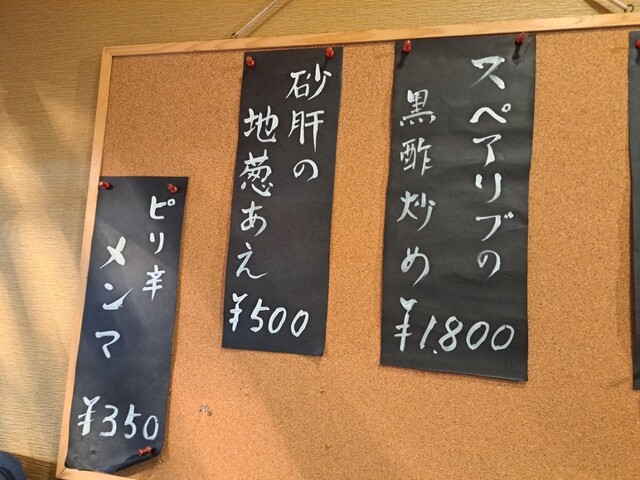 スペアリブの
黒酢炒め
¥1,800
砂肝の
地葱あえ
¥500
ピリ辛
メンマ
¥350